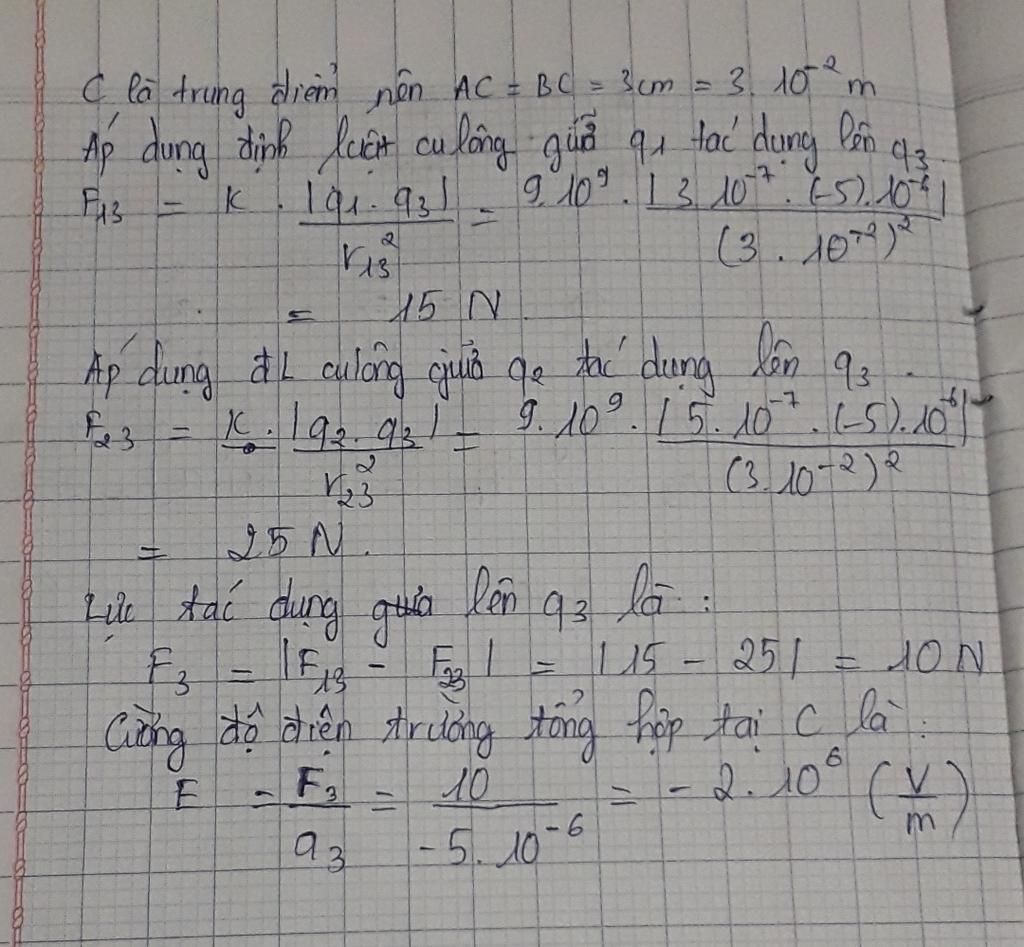 C là trung điểm nên AC = BC = 3cm = 3. 10⁻² m
Áp dụng định luật culông giữa q₁ tác dụng lên q₃.
F₁₃ = K . |q₁. q₃| / r₁₃² = 9.10⁹ . |3.10⁻⁷ . (-5).10⁻⁶| / (3 . 10⁻²)²
= 15 N
Áp dụng ĐL culông giữa q₂ tác dụng lên q₃.
F₂₃ = K. |q₂. q₃| / r₂₃² = 9.10⁹ . |5.10⁻⁷ . (-5).10⁻⁶| / (3.10⁻²)²
= 25 N.
Lực tác dụng lên q₃ là :
F₃ = |F₁₃ - F₂₃| = |15 - 25| = 10 N
Cường độ điện trường tổng hợp tại C là :
E = F₃ / q₃ = 10 / -5. 10⁻⁶ = - 2. 10⁶ (V/m)